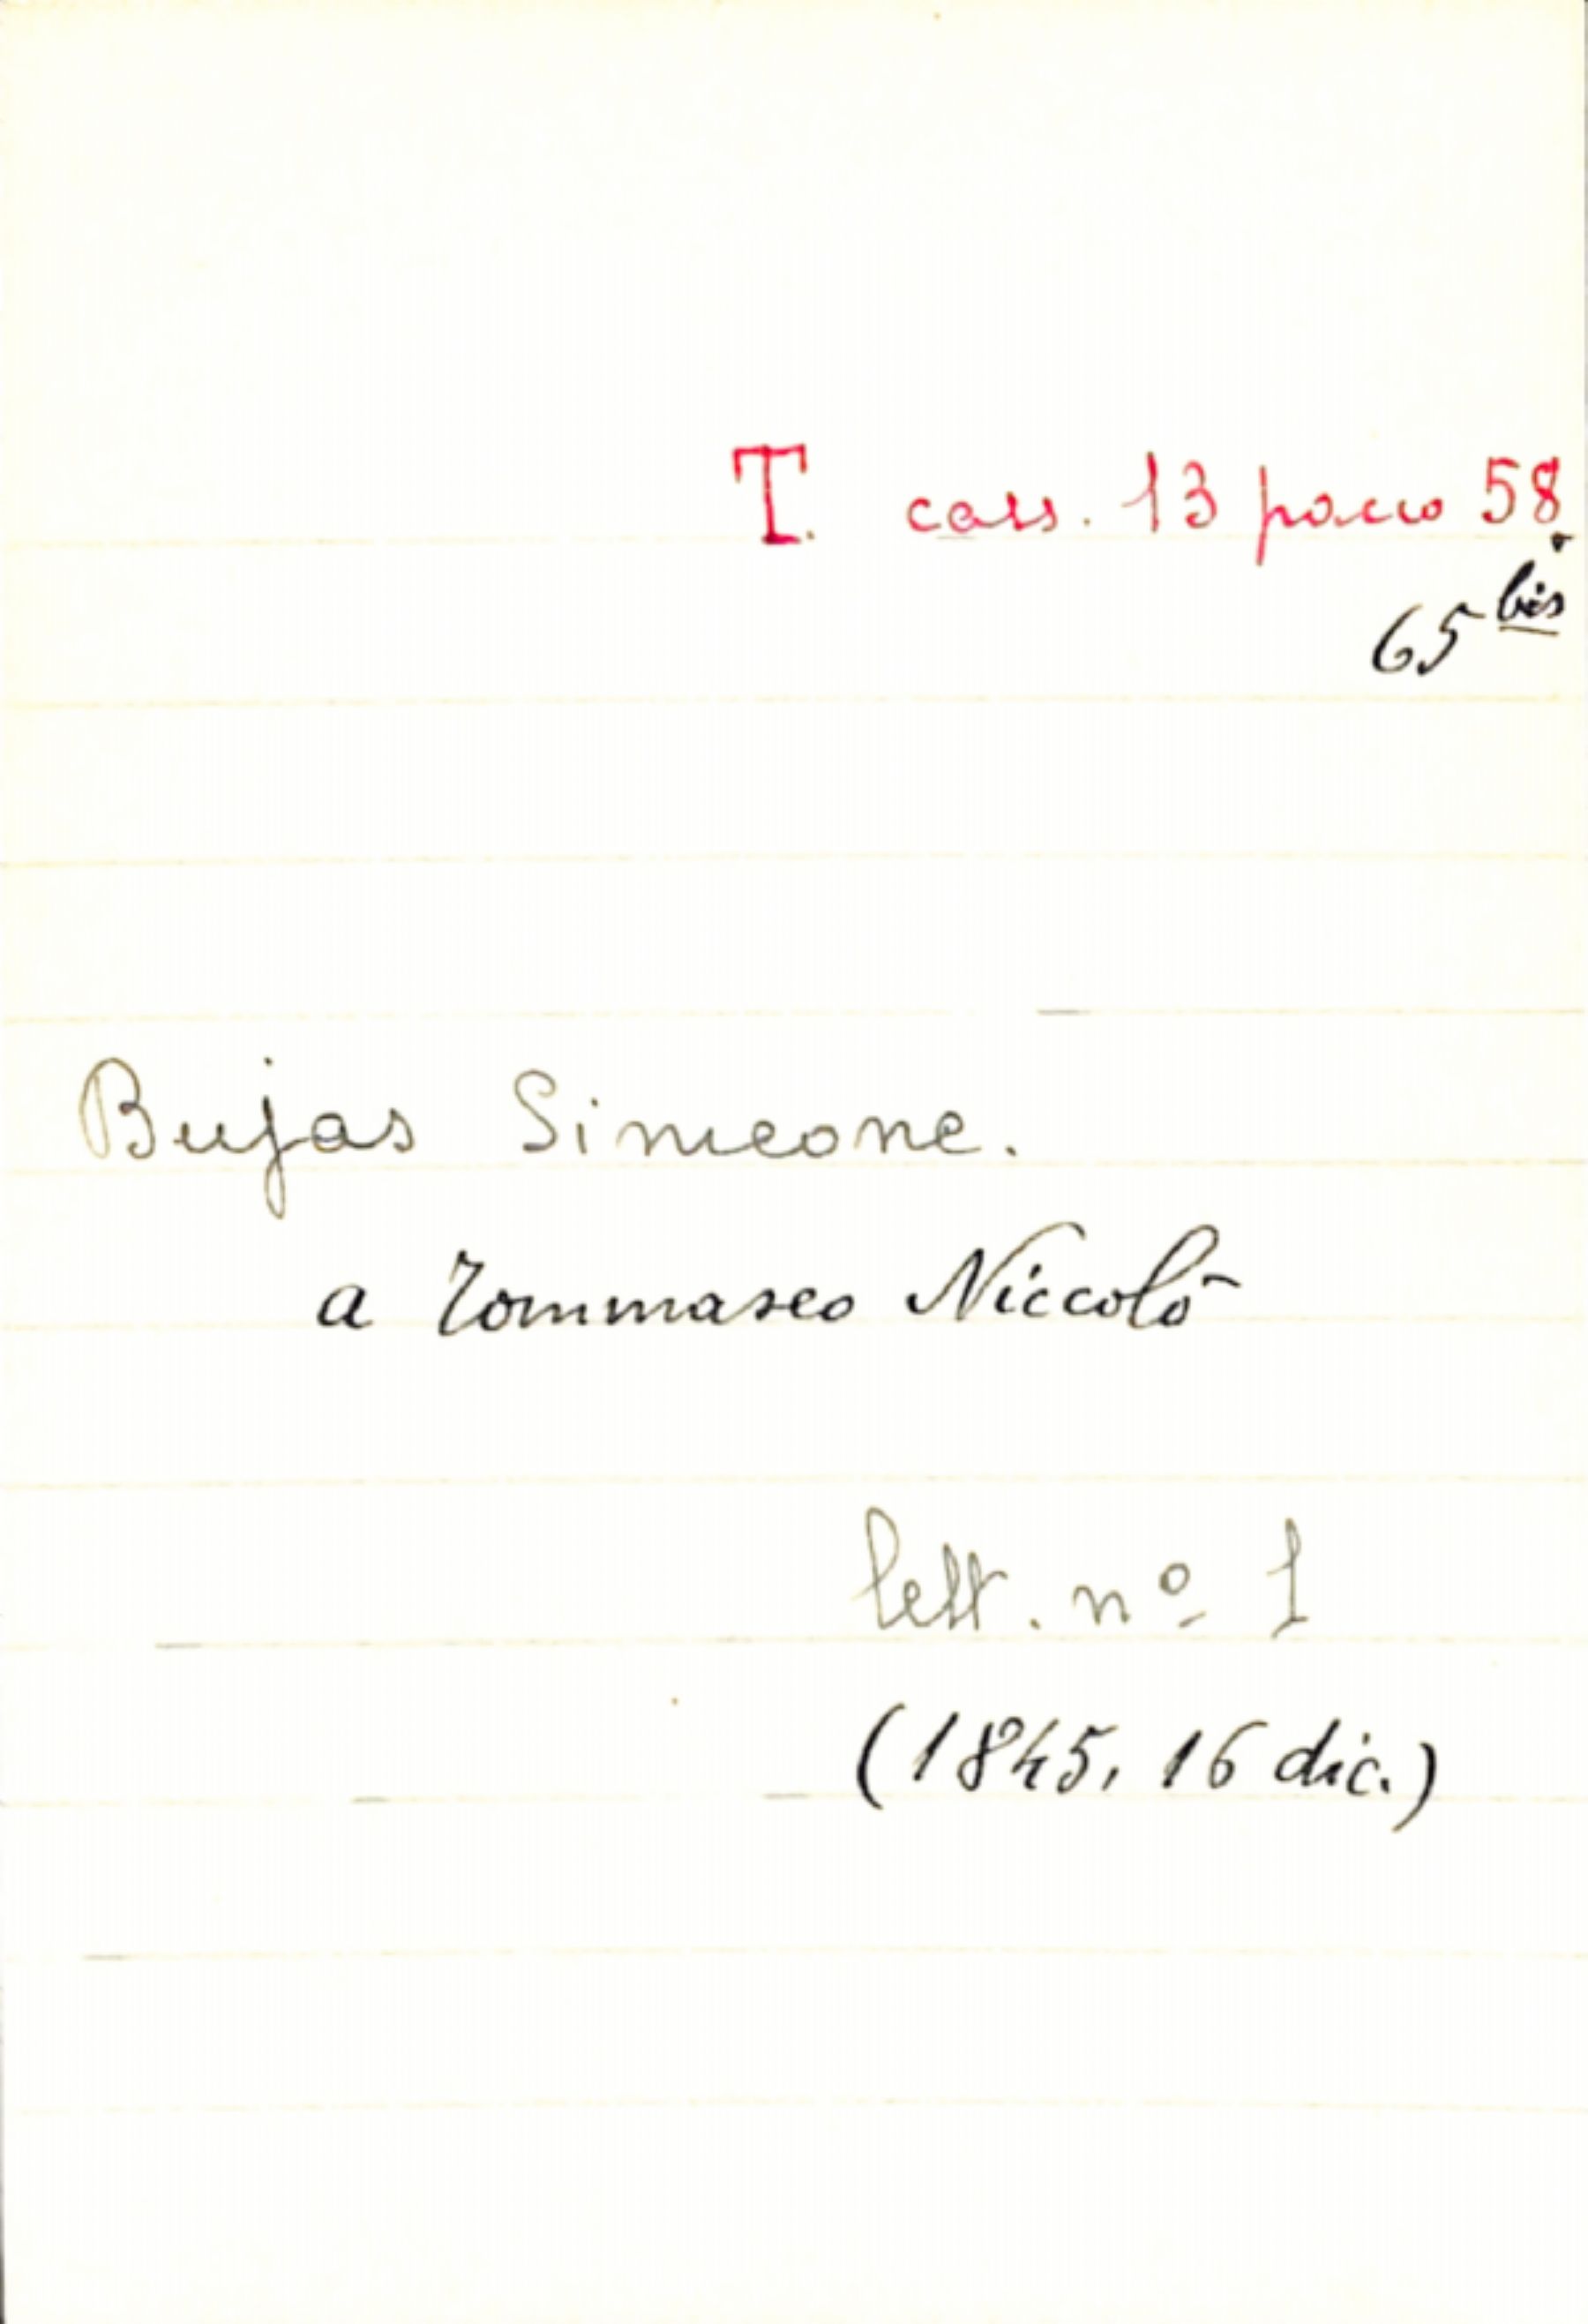 T. cass. 13 pacco 58.
65 bis
Bujas Simeone.
a Tommaseo Niccolò
lett. nº 1
(1845, 16 dic.)